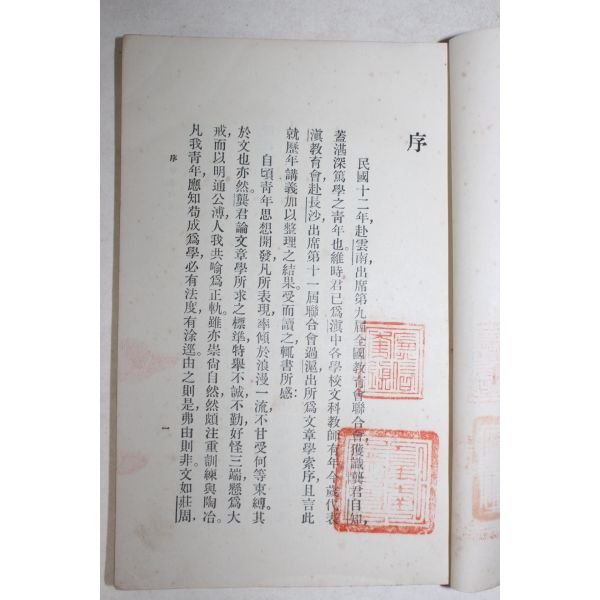 序
民國十二年，赴雲南出席第九屆全國教育會聯合會，獲識龔君自知，
蓋湛深篤學之青年也。維時君已爲滇中各學校文科教師有年。今歲代表
滇教育會赴長沙，出席第十一屆聯合會，過滬，出所爲文章學索序，且言此
就歷年講義加以整理之結果。受而讀之，輒書所感：
自頃青年思想開發，凡所表現，率傾於浪漫一流，不甘受何等束縛。其
於文也亦然。龔君論文章學所求之標準，特舉不誠，不勤，好怪三端，懸爲大
戒，而以明通公溥，人我共喻爲正軌。雖亦崇尙自然，然頗注重訓練與陶冶。
凡我青年，應知苟成爲學，必有法度，有涂逕，由之則是，弗由則非。文如莊周，
序
一